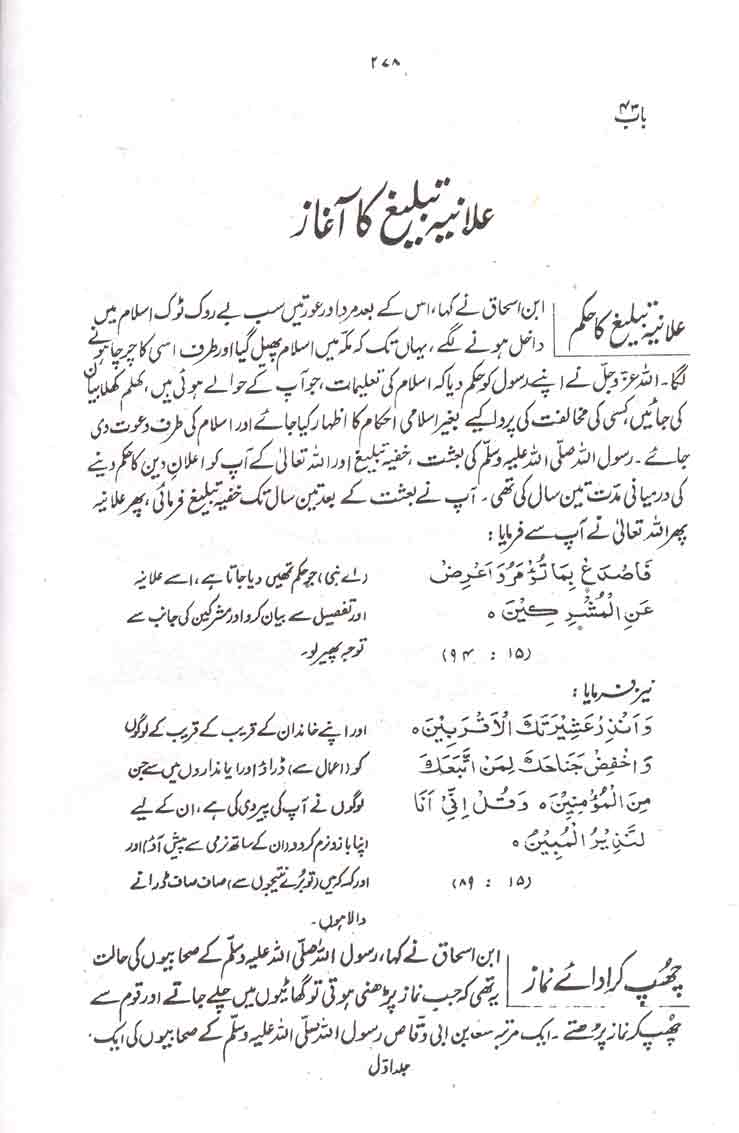 ۲۷۸
باب ۴۳
علانیہ تبلیغ کا آغاز
علانیہ تبلیغ کا حکم
ابن اسحاق نے کہا، اس کے بعد مرد اور عورتیں سب بے روک ٹوک اسلام میں
داخل ہونے لگے، یہاں تک کہ مکہ میں اسلام پھیل گیا اور طرف اسی کا چرچا ہونے
لگا۔ اللہ عزّ و جلّ نے اپنے رسول کو حکم دیا کہ اسلام کی تعلیمات، جو آپ کے حوالے ہوئی ہیں، کھلم کھلا بیان
کی جائیں، کسی کی مخالفت کی پروا کیے بغیر اسلامی احکام کا اظہار کیا جائے اور اسلام کی طرف دعوت دی
جائے۔ رسول اللہ صلّی اللہ علیہ وسلّم کی بعثت، خفیہ تبلیغ اور اللہ تعالیٰ کے آپ کو اعلانِ دین کا حکم دینے
کی درمیانی مدّت تین سال کی تھی۔ آپ نے بعثت کے بعد تین سال تک خفیہ تبلیغ فرمائی، پھر علانیہ
پھر اللہ تعالیٰ نے آپ سے فرمایا:
فَاصْدَعْ بِمَا تُؤْمَرُ وَاَعْرِضْ
عَنِ الْمُشْرِکِیْنَ ہ
(۱۵ : ۹۴)
(اے نبی) جو حکم تمھیں دیا جاتا ہے، اسے علانیہ
اور تفصیل سے بیان کرو اور مشرکین کی جانب سے
توجہ پھیر لو۔
نیز فرمایا:
وَاَنْذِرْ عَشِیْرَتَکَ الْاَقْرَبِیْنَ ہ
وَاخْفِضْ جَنَاحَکَ لِمَنِ اتَّبَعَکَ
مِنَ الْمُؤْمِنِیْنَ ہ وَقُلْ اِنِّیْ اَنَا
النَّذِیْرُ الْمُبِیْنُ ہ
(۱۵ : ۸۹)
اور اپنے خاندان کے قریب کے قریب کے لوگوں
کو (اعمال سے) ڈراؤ اور ایمانداروں میں سے جن
لوگوں نے آپ کی پیروی کی ہے، ان کے لیے
اپنا بازو نرم کر دو (ان کے ساتھ نرمی سے پیش آؤ) اور
اور کہہ کہ میں (تو بُرے نتیجوں سے) صاف صاف ڈرانے
والا ہوں۔
چھُپ کر ادائے نماز
ابن اسحاق نے کہا، رسول اللہ صلّی اللہ علیہ وسلّم کے صحابیوں کی حالت
یہ تھی کہ جب نماز پڑھنی ہوتی تو گھاٹیوں میں چلے جاتے اور قوم سے
چھُپ کر نماز پڑھتے۔ ایک مرتبہ سعد بن ابی وقاص رسول اللہ صلّی اللہ علیہ وسلّم کے صحابیوں کی ایک
جلد اوّل